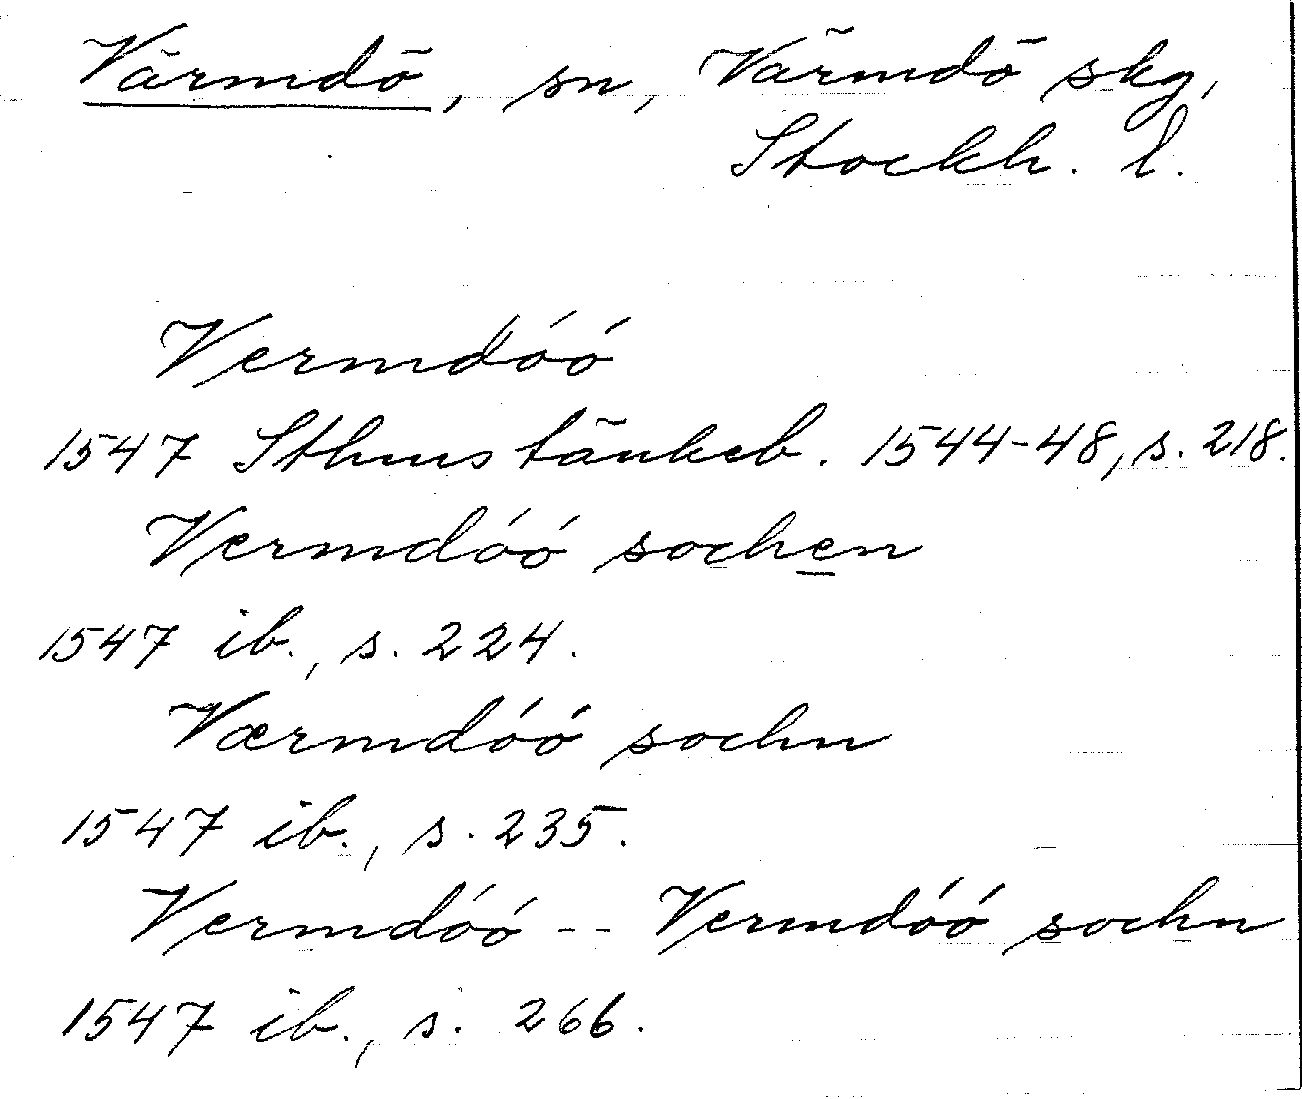 Värmdö, sn, Värmdö skg,
Stockh. l.
Vermdóó
1547 Sthms tänkeb. 1544-48, s. 218.
Vermdóó sochen
1547 ib., s. 224.
Værmdóó sochn
1547 ib., s. 235.
Vermdóó -- Vermdóó sochn
1547 ib., s. 266.